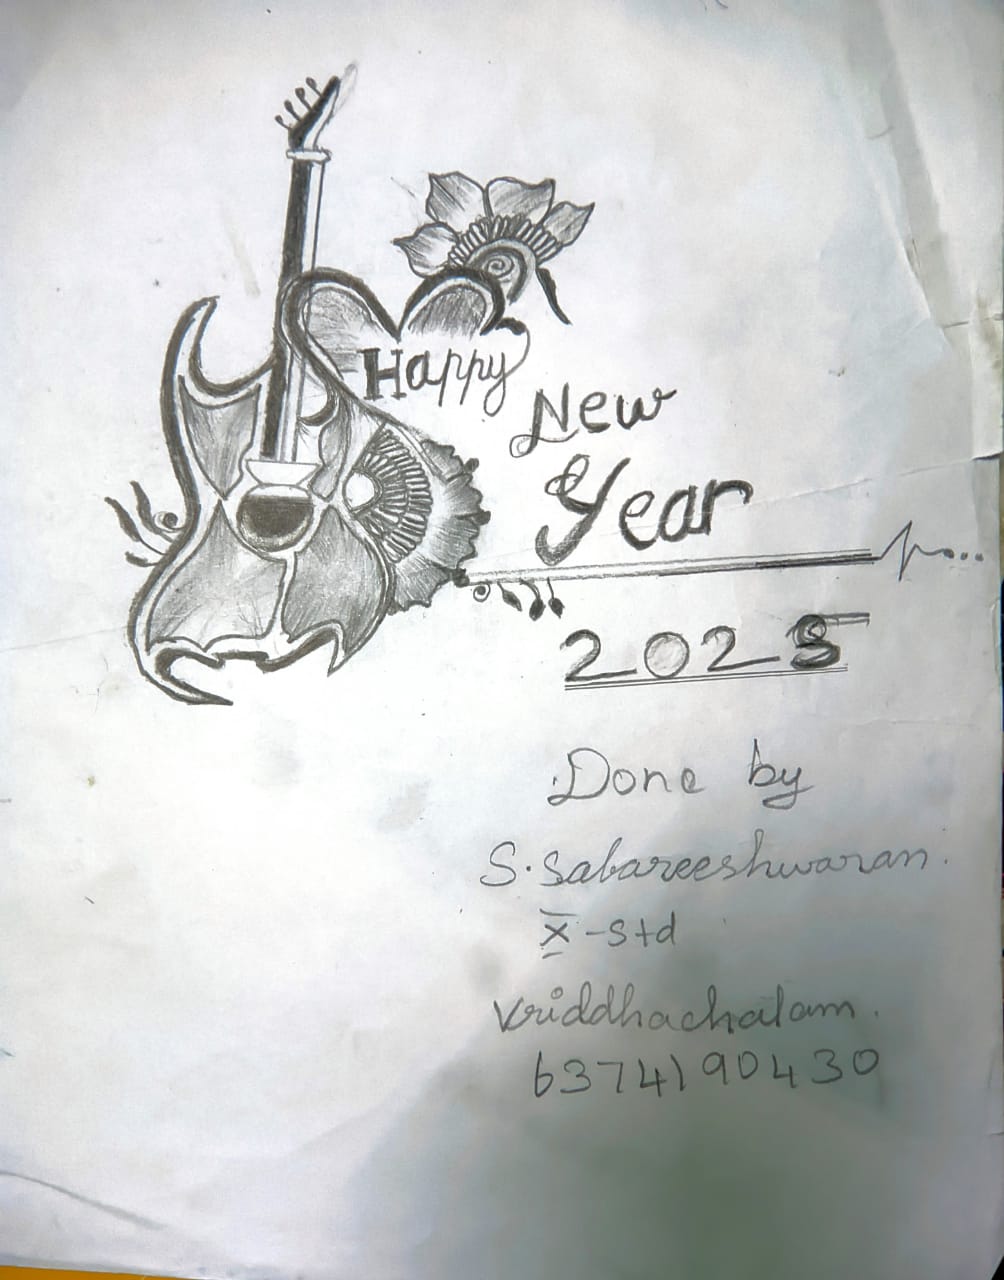 Happy
New
Year
2025
Done by
S. Sabareeshwaran.
X - Std
Vriddhachalam.
6374190430